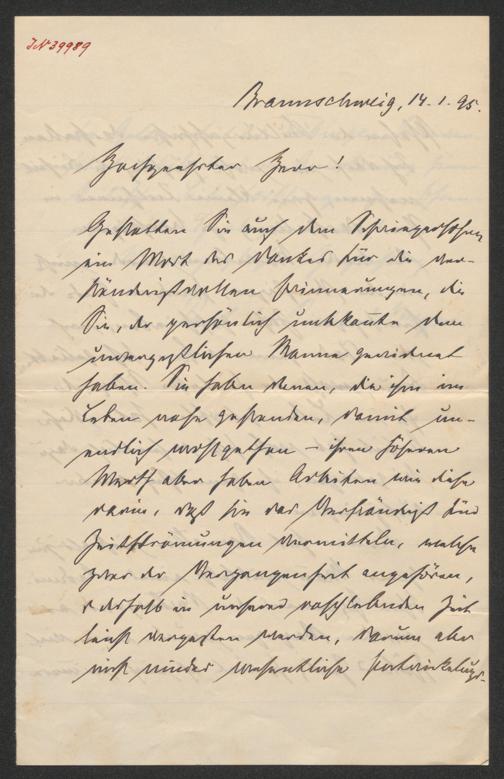 JN 39989
Braunschweig, 14. 1. 95.
Hochgeehrter Herr!
Gestatten Sie auch dem Schwiegersohne
ein Wort des Dankes für die ver-
ständnißvollen Erinnerungen, die
Sie, der persönlich unbekannte dem
unvergeßlichen Manne gewidmet
haben. Sie haben denen, die ihm im
Leben nahe gestanden, damit un-
endlich wohlgethan – ihren höheren
Werth aber haben Arbeiten wie diese
darin, daß sie das Verständniß für
Zeitströmungen vermitteln, welche
zwar der Vergangenheit angehören,
u. deshalb in unserer raschlebenden Zeit
leicht vergessen werden, darum aber
nicht minder wesentliche Entwickelungs-